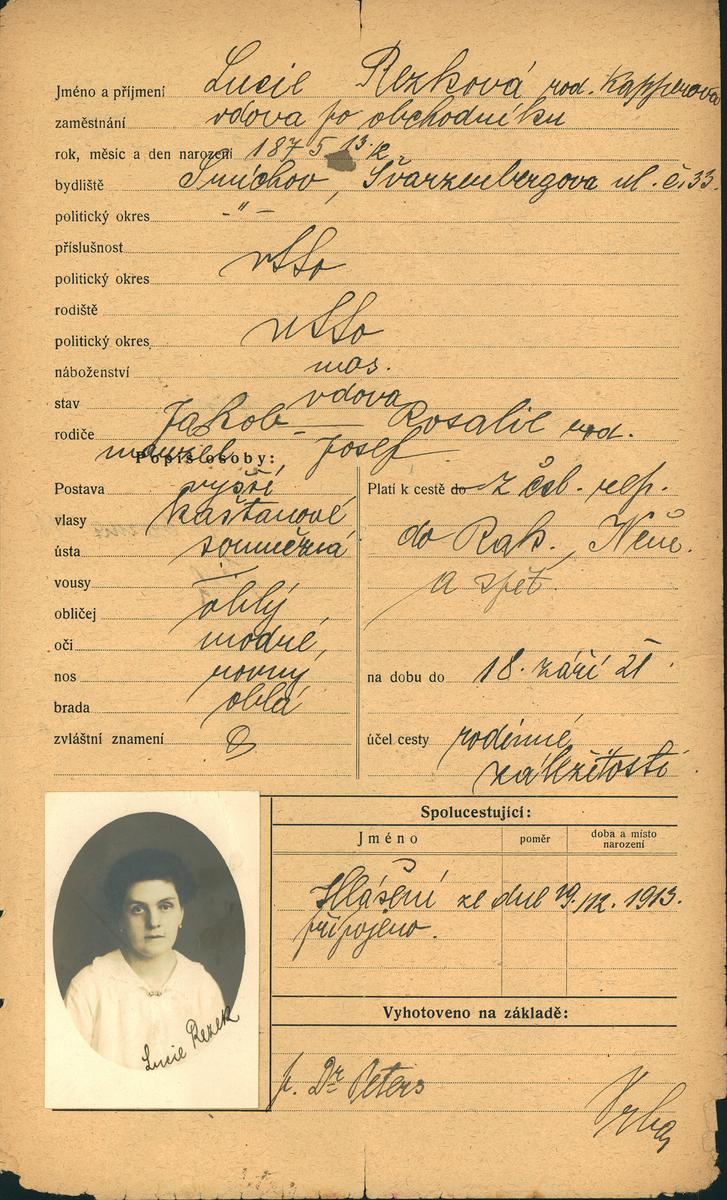 Jméno a příjmení Lucie Rezková roz. Kapperova
zaměstnání vdova po obchodníku
rok, měsíc a den narození 1875 13
bydliště Smíchov, Švarzenbergova ul. č. 33.
politický okres -"-
příslušnost
politický okres
rodiště
politický okres
náboženství mos.
stav vdova
rodiče Jakob — Rosalie roz.
manžel Josef
Popis osoby:
Postava vyšší
vlasy kaštanové
ústa souměrná
vousy
obličej oblý
oči modré,
nos rovný
brada oblá
zvláštní znamení
Platí k cestě do z čsl. rep.
do Rak., Něm.
a zpět
na dobu do 18. září 21
účel cesty rodinné
záležitosti
Spolucestující:
Jméno poměr doba a místo narození
Hlášení ze dne 19. 1913.
připojeno.
Vyhotoveno na základě:
Lucie Rezek
Dr Peters